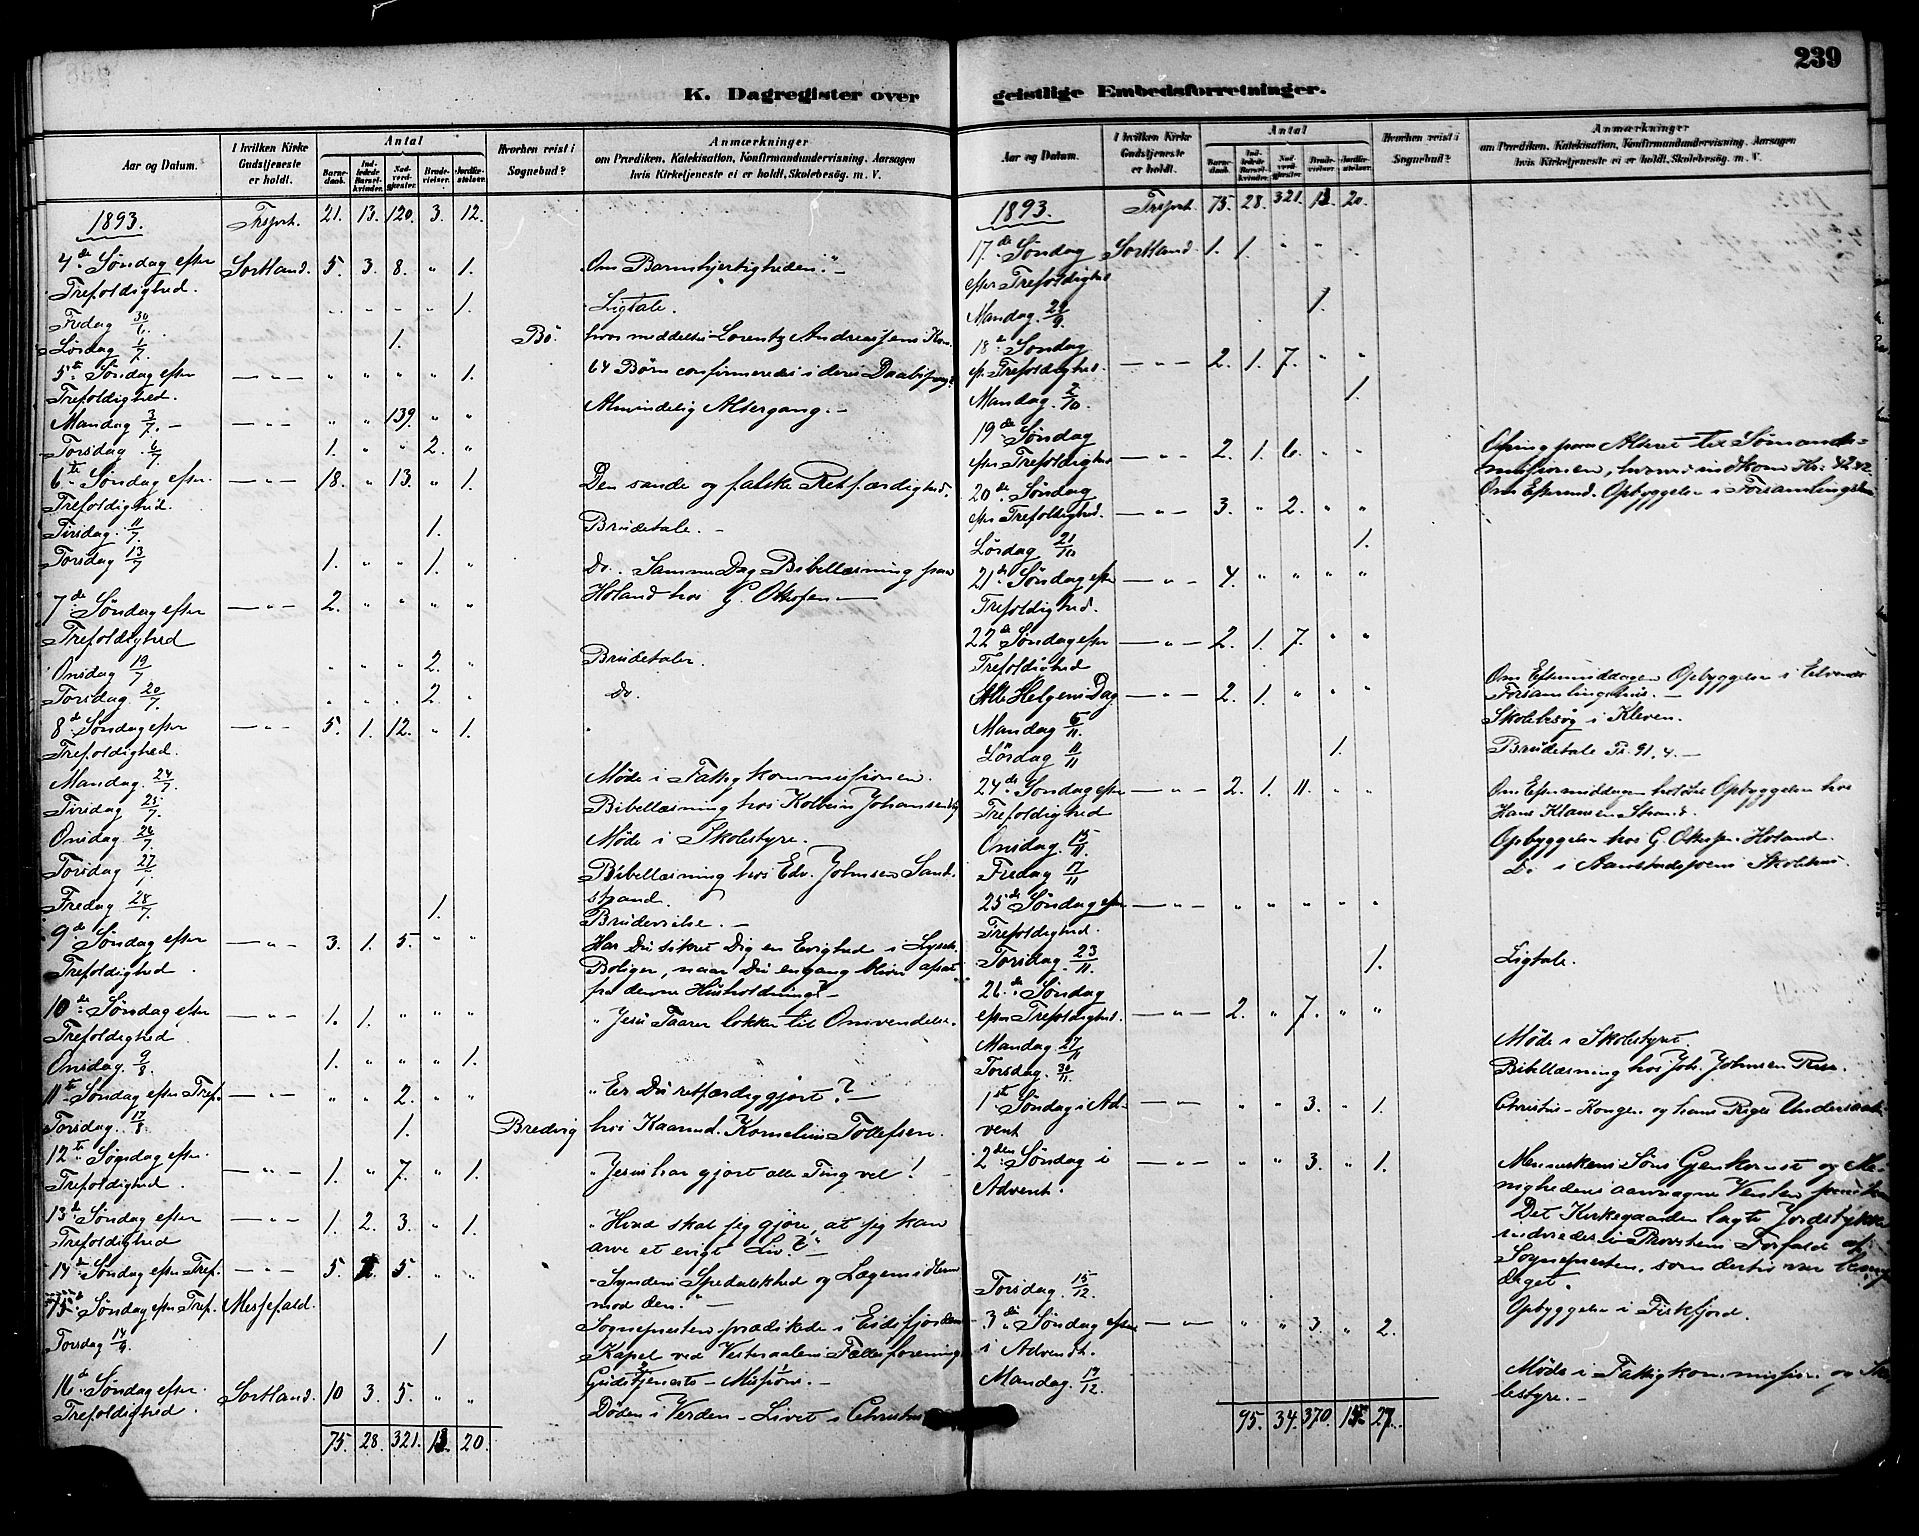 239
K. Dagregister over geistlige Embedsforretninger.
Aar og Datum. I hvilken Kirke Gudstjeneste er holdt. Antal Barnedaab. Indledede Barselkvinder. Nadverdgjæster. Brudevielser. Jordfæstelser. Hvorhen reist i Sognebud? Anmærkninger om Prædiken, Katekisation, Konfirmandundervisning, Aarsagen hvis Kirketjeneste ei er holdt, Skolebesög. m. V.
1893. Trsport. 21. 13. 120. 3. 12.
4de Søndag efter Sortland. 5. 3. 8. " 1. Om Barmhjertigheden." -
Trefoldighed.
Fredag 30/6. " " " " 1. Ligtale.
Lørdag 1/7. 1. Bö. hvor meddeltes Lorentz Andreassens Kone
5te Søndag efter — " — " " " " 1. 64 Børn confirmeredes i deres Daabspagt
Trefoldighed.
Mandag 3/7. - — " — " " 139. " " Almindelig Altergang. -
Torsdag 6/7. 1. " " 2. "
6te Søndag efter — " — 18. " 13. " 1. Den sande og falske Retfærdighed.
Trefoldighed.
Tirsdag 11/7. 1. Brudetale. -
Torsdag 13/7 1. " " 1. " Do. Samme Dag Bibellæsning paa
Holand hos G. Ottesen -
7de Søndag efter — " — 2. " " " "
Trefoldighed
Onsdag 19/7 " " " 2. " Brudetaler.
Torsdag 20/7. " " " 2. " Do.
8de Søndag efter — " — 5. 1. 12. " 1. "
Trefoldighed.
Mandag 24/7. Møde i Fattigkommissionen.
Tirsdag 25/7. Bibellæsning hos Kolbein Johansen
Onsdag 26/7. Møde i Skolestyre.
Torsdag 27/7. Bibellæsning hos Edv. Johnsen Sand-
strand.
Fredag 28/7. 1. Brudevielse. -
9de Søndag efter — " — 3. 1. 5. " " Har Du sikret Dig en Evighed i Lysets
Trefoldighed Boliger, naar Du engang bliver afsat
fra denne Husholdning? -
10de Søndag efter — " — 1. 1. " " " "Jesu Taarer lokker til Omvendelse.
Trefoldighed
Onsdag 9/8 1. " " " 1.
11te Søndag efter Tref. — " — " " 2. " " "Er Du retfærdiggjort? -
Torsdag 17/8 1. Bredvig hos Kaarmd. Kornelius Tollefsen.
12te Søndag efter — " — 1. " 7. " 1. "Jesus har gjort alle Ting vel!
Trefoldighed.
13de Søndag efter — " — 1. 2. 3. " 1. "Hvad skal jeg gjöre, at jeg kan
Trefoldighed arve et evigt Liv?" -
14de Søndag efter Tref. — " — 5. 5. " " "Syndens Spedalskhed og Lægemidlerne
mod den." -
15de Søndag efter Tref. Messefald. Sognepresten prædikede i Eidsfjordens
Torsdag 14/9. 1 Kapel ved Vesteraalens Fællesforenings
Gudstjeneste - Missions. -
16de Søndag efter Sortland. 10 3. 5. " " Døden i Verden - Livet i Christus
Trefoldighed.
75. 28. 321. 13. 20.
Aar og Datum. I hvilken Kirke Gudstjeneste er holdt. Antal Barnedaab. Indledede Barselkvinder. Nadverdgjæster. Brudevielser. Jordfæstelser. Hvorhen reist i Sognebud? Anmærkninger om Prædiken, Katekisation, Konfirmandundervisning, Aarsagen hvis Kirketjeneste ei er holdt, Skolebesög. m. V.
1893. Trsport. 75. 28. 321. 13. 20.
17de Søndag Sortland. 1. 1. " " "
efter Trefoldighed
Mandag 1.
18de Søndag
eft. Trefoldighed. — " — 2. 1. 7. " "
Mandag 2/10 1.
19de Søndag
efter Trefoldighed — " — 2. 1. 6. " " Ofring paa Alteret til Sømands-
missionen, hvorved indkom Kr: 42.42.
20de Søndag Om Efterm. Opbyggelse i Forsamlingshus
efter Trefoldighed. — " — 3. " 2. " "
Lørdag 21/10 1.
21de Søndag efter — " — 4. " " " "
Trefoldighed.
22de Søndag efter — " — 2. 1. 7. " "
Trefoldighed
Alle Helgens Dag — " — 2. 1. " " " Om Eftermiddagen Opbyggelse i
Forsamlingshus. -
Mandag 6/11. Skolebesøg i Kleven.
Lørdag 11/11 1. Brudetale Ps. 91, 4. -
24de Søndag efter — " — 2. 1. 11. " " Om Eftermiddagen holdtes Opbyggelse hos
Trefoldighed Hans Klausen Strand.
Onsdag 15/11. Opbyggelse hos G. Ottesen Holand.
Fredag 17/11 Do i Aanstadsjøens Skolehus.
25de Søndag efter — " — " " " " "
Trefoldighed.
Torsdag 23/11. 1. Ligtale.
26de Søndag
efter Trefoldighed. — " — 2. " 7. " "
Mandag 27/11 Møde i Skolestyret.
Torsdag 30/11. Bibellæsning hos Joh. Johnsen
1ste Søndag i Ad- — " — " " 3. " 1. Christus - Kongen og hans Riges Undersaatter
vent
2den Søndag i — " — " " 3. " 1. Menneskens Søns Gjenkomst og Me-
Advent. nighedens
Det Kirkegaarden lagte Jordstykke
indviedes i Provstens Forfald af
Sognepresten, som dertil var
diget.
Torsdag 15/12. Opbyggelse i Fiskfjord.
3die Søndag — " — " " 3. " 2.
i Advendt.
Mandag Møde i Fattigkommission og Sko-
lestyre. -
95. 34. 370. 27.